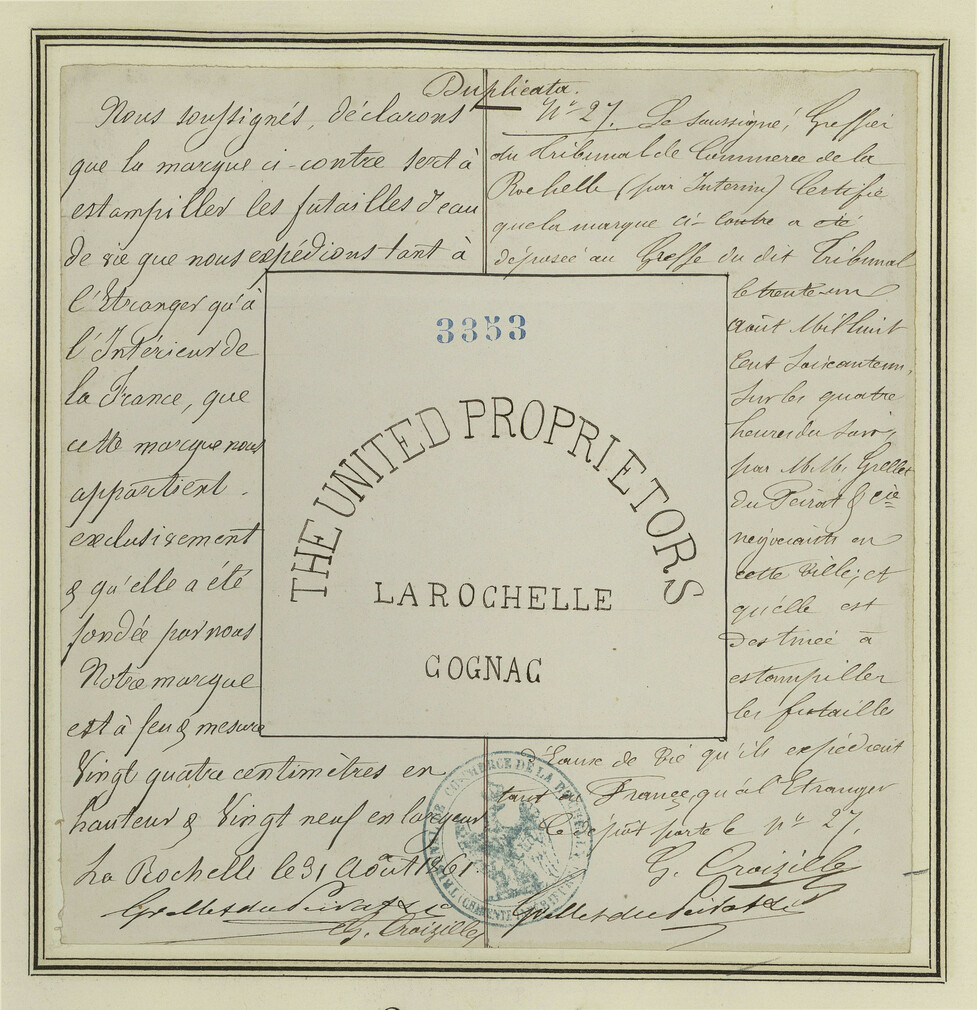 Duplicata.
Nous soussignés, déclarons
que la marque ci-contre sert à
estampiller les futailles d'eau
de vie que nous expédions tant à
l'Etranger qu'à
l'Intérieur de
la France, que
cette marque nous
appartient
exclusivement
& qu'elle a été
fondée par nous
Notre marque
est à feu & mesure
Vingt quatre centimètres en
hauteur & Vingt neuf en largeur
La Rochelle le 31 Août 1861.
Grellet du Peirat & Cie
G. Croizille
N° 27. Le soussigné, Greffier
du tribunal de Commerce de la
Rochelle (par Interim) Certifie
que la marque ci-contre a été
déposée au Greffe du dit Tribunal
le trente-un
Août Mil huit
Cent Soixante un,
Sur les quatre
heures du Soir,
par M.M. Grellet
du Peirat & cie
négociants en
cette Ville, et
qu'elle est
destinée à
estampiller
les futaille
d'eaux de Vie qu'ils expédient
tant en France, qu'à l'Etranger
Ce dépôt porte le n° 27.
G. Croizille
Grellet du Peirat & Cie
3353
THE UNITED PROPRIETORS
LA ROCHELLE
COGNAC
TRIBUNAL DE COMMERCE DE LA ROCHELLE
(CHARENTE INFÉRIEURE)